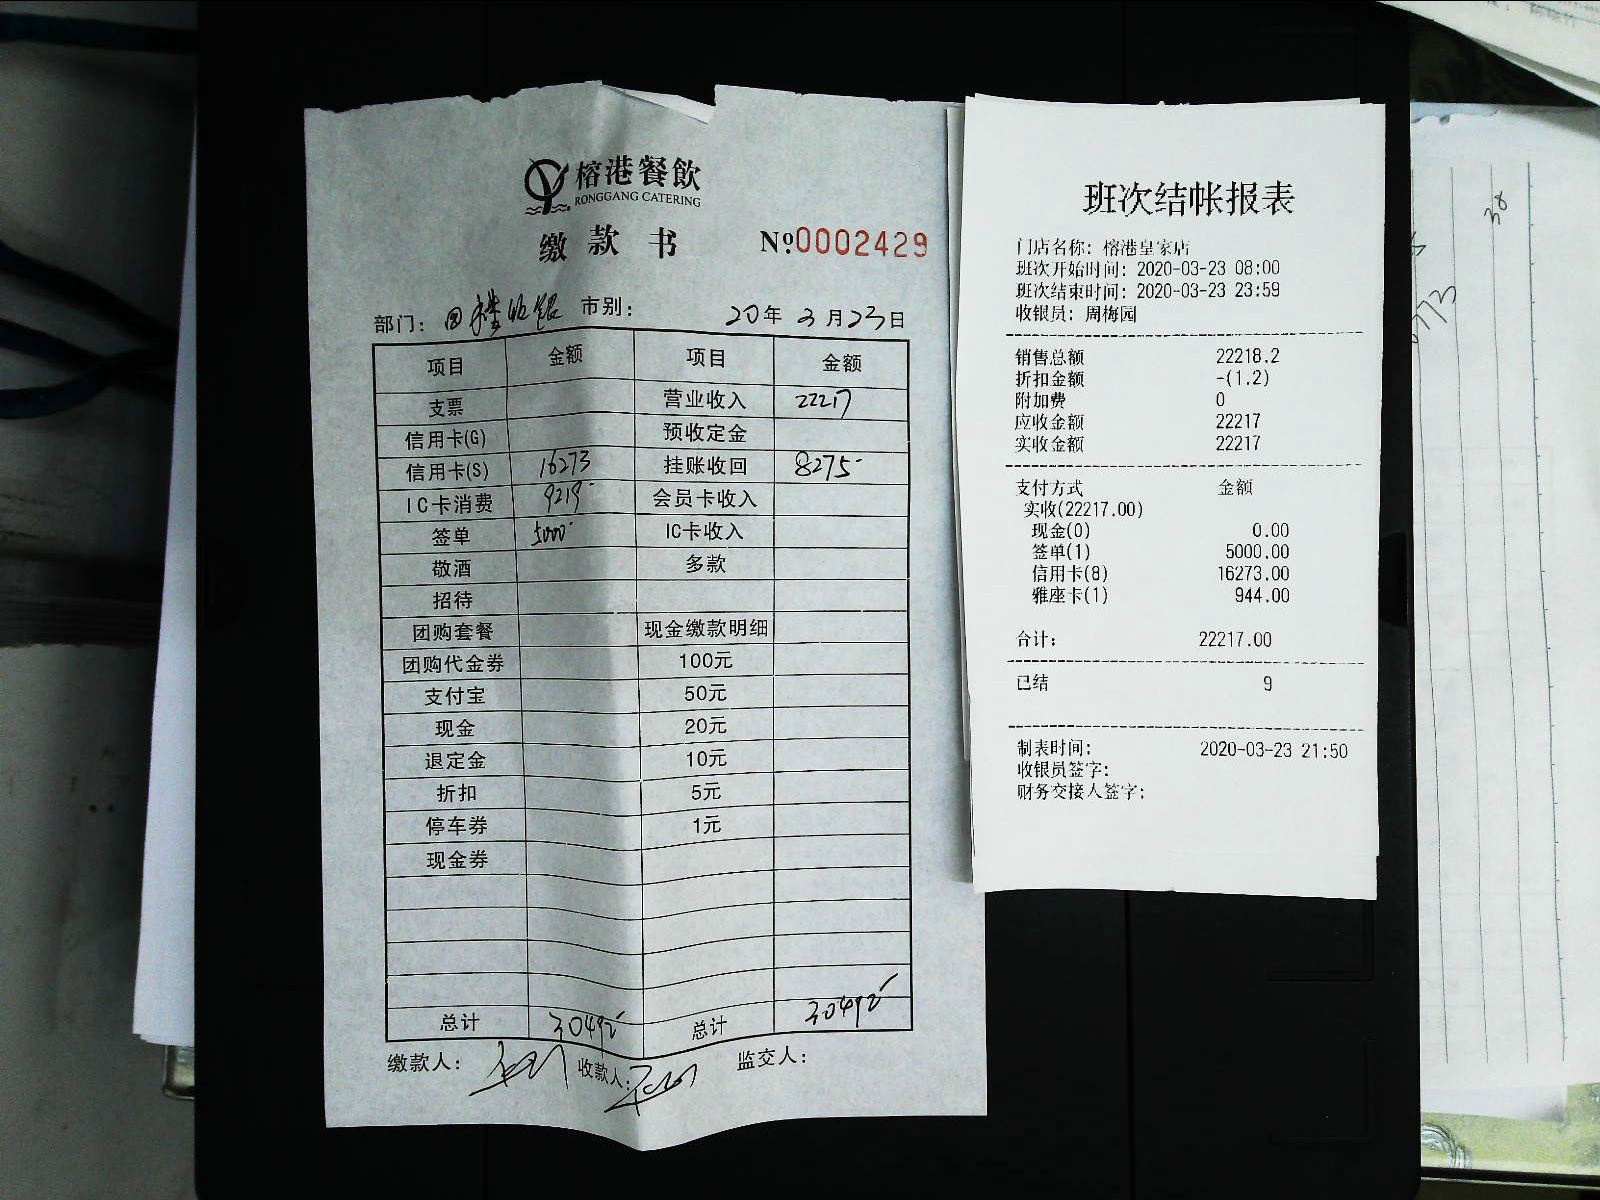 榕港餐飲
RONGGANG CATERING
缴款书 №0002429
部门: 市别: 20年3月23日
项目 金额 项目 金额
支票 营业收入 22217
信用卡(G) 预收定金
信用卡(S) 16273 挂账收回 8275
IC卡消费 9219 会员卡收入
签单 5000 IC卡收入
敬酒 多款
招待
团购套餐 现金缴款明细
团购代金券 100元
支付宝 50元
现金 20元
退定金 10元
折扣 5元
停车券 1元
现金券
总计 30492 总计 30492
缴款人: 收款人: 监交人:
班次结帐报表
门店名称: 榕港皇家店
班次开始时间: 2020-03-23 08:00
班次结束时间: 2020-03-23 23:59
收银员: 周梅园
销售总额 22218.2
折扣金额 -(1.2)
附加费 0
应收金额 22217
实收金额 22217
支付方式 金额
实收(22217.00)
现金(0) 0.00
签单(1) 5000.00
信用卡(8) 16273.00
雅座卡(1) 944.00
合计: 22217.00
已结 9
制表时间: 2020-03-23 21:50
收银员签字:
财务交接人签字:
38